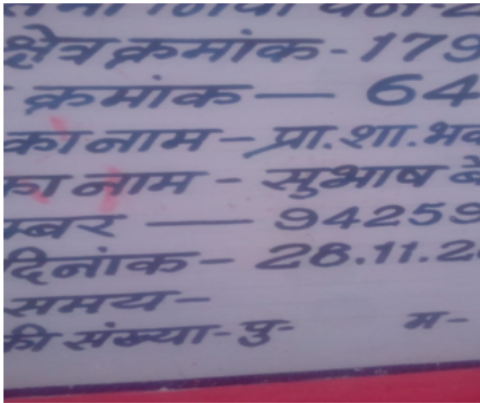 क्षेत्र क्रमांक - 179
क्रमांक — 64
का नाम - प्रा.शा.भव
का नाम - सुभाष
म्बर — 94259
दिनांक - 28.11.2
समय -
की संख्या - पु- म-